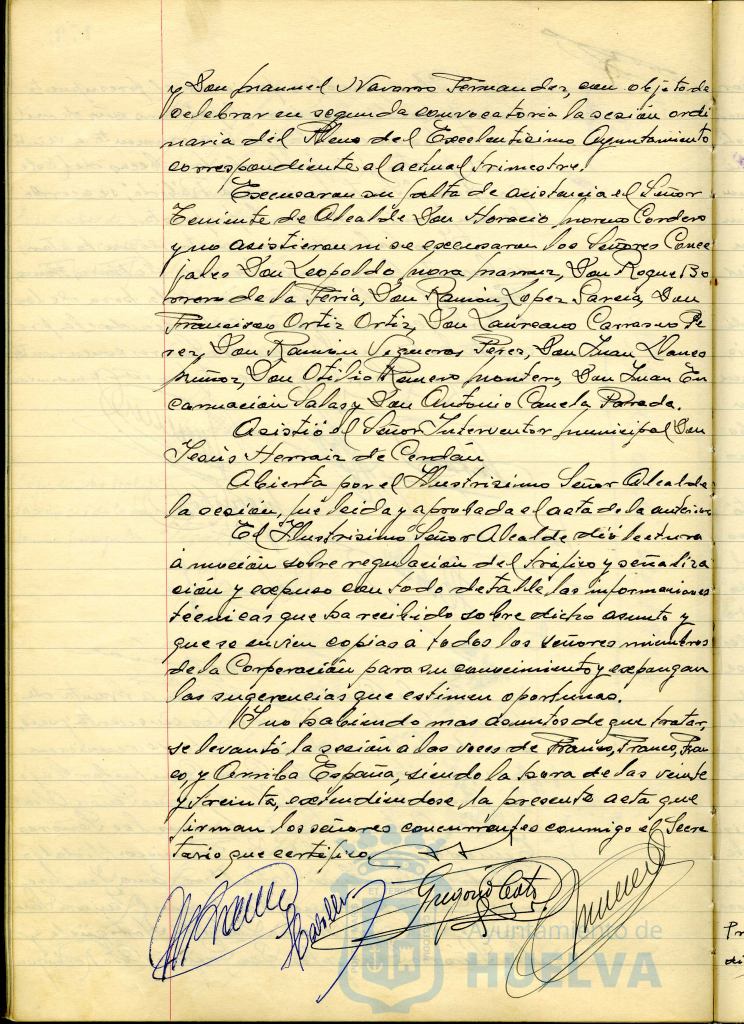 y Don Manuel Navarro Fernandez, con objeto de
celebrar en segunda convocatoria la sesión ordi
naria del Pleno del Excelentísimo Ayuntamiento
correspondiente al actual trimestre.
Excusaron su falta de asistencia el Señor
Teniente de Alcalde Don Horacio Moreno Cordero
y no asistieron ni se excusaron los Señores Conce
jales Don Leopoldo Mora Don Roque Bo
rrero de la Feria, Don Ramón López García, Don
Francisco Ortiz Ortiz, Don Laureano Carrasco Pe
rez, Don Ramón Vizneros Perez, Don Juan Llanes
Muñoz, Don Otilio Romero Montero, Don Juan En
carnación Salas y Don Antonio Canela Parrada.
Asistió el Señor Interventor municipal Don
Jesús Herraiz de Cerdán
Abierta por el Ilustrisimo Señor Alcalde
la sesión, fué leida y aprobada el acta de la anterior
El Ilustrisimo Señor Alcalde dió lectura
á moción sobre regulación del tráfico y señaliza
ción y expuso con todo detalle las informaciones
técnicas que ha recibido sobre dicho asunto y
que se envien copias á todos los señores miembros
de la Corporación para su conocimiento y expongan
las sugerencias que estimen oportunas.
Y no habiendo mas asuntos de que tratar,
se levantó la sesión á las voces de Franco, Franco, Fran
co, y Arriba España, siendo la hora de las veinte
y treinta, extendiendose la presente acta que
firman los señores concurrentes conmigo el Secre
tario que certifico.
Gregorio
Ayuntamiento de
HUELVA
Pr
di